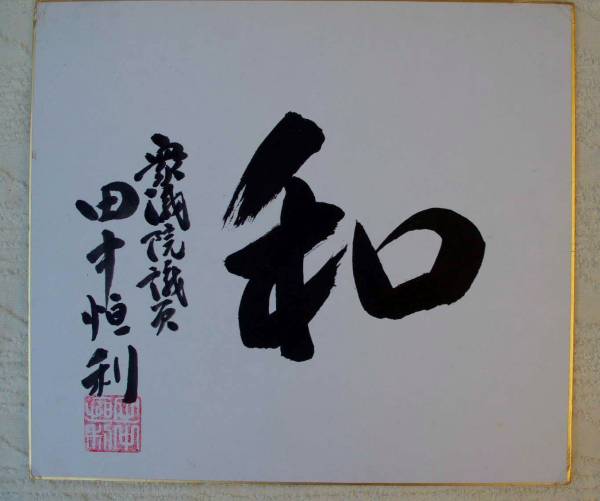 和
衆議院議員
田中恒利